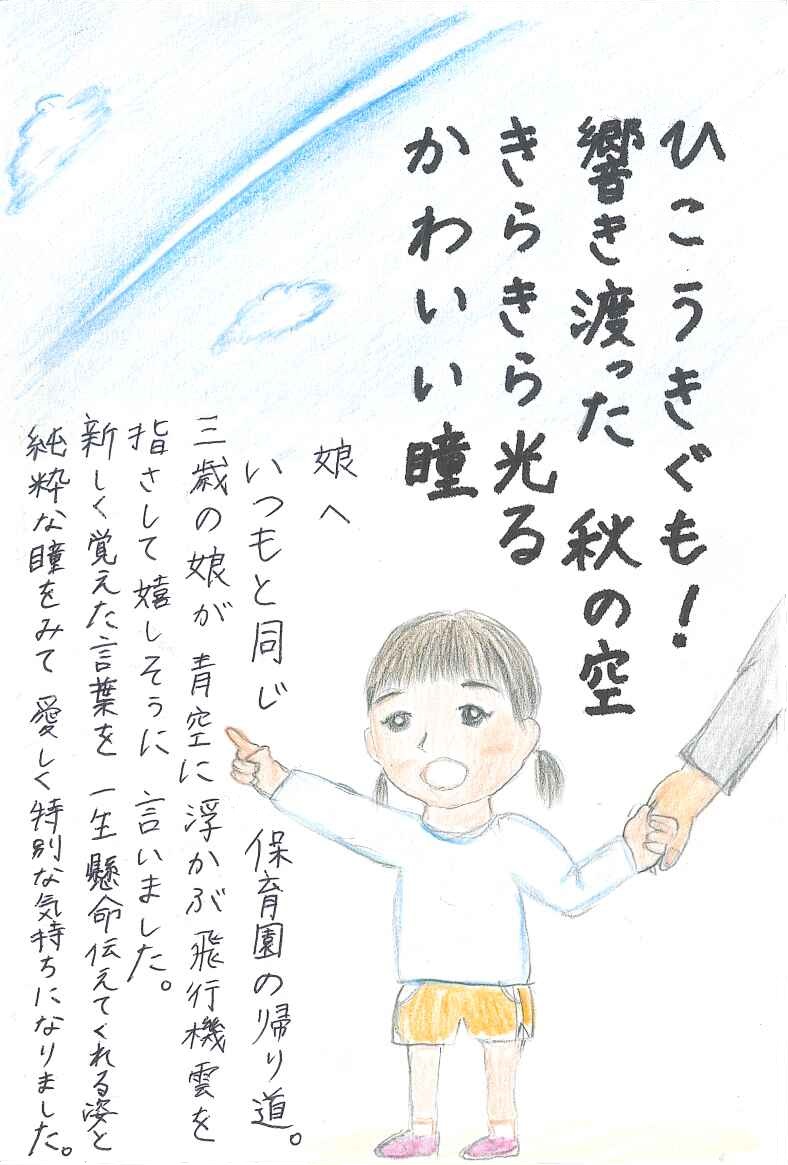 ひこうきぐも!
響き渡った 秋の空
きらきら光る
かわいい瞳
娘へ
いつもと同じ 保育園の帰り道。
三歳の娘が 青空に浮かぶ飛行機雲を
指さして嬉しそうに 言いました。
新しく覚えた言葉を 一生懸命伝えてくれる姿と
純粋な瞳をみて 愛しく特別な気持ちになりました。